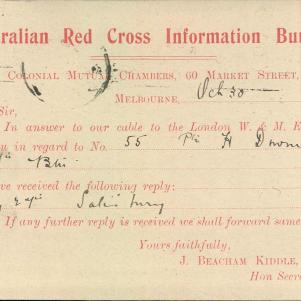 ralian Red Cross Information Bu
Colonial Mutual Chambers, 60 Market Street,
Melbourne, Oct 30
Sir,
In answer to our cable to the London W. & M. E
u in regard to No. 55 Pte H
Btn
ve received the following reply:
Salisbury
If any further reply is received we shall forward same
Yours faithfully,
J. BEACHAM KIDDLE,
Hon Secre